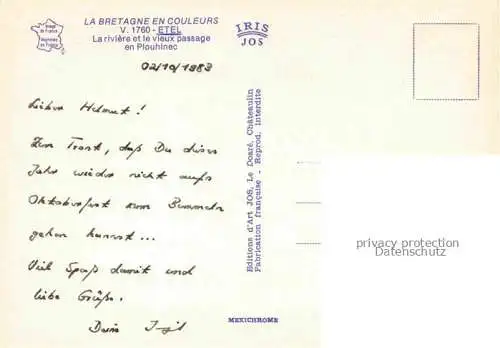 LA BRETAGNE EN COULEURS
V. 1760 - ETEL
La rivière et le vieux passage
en Plouhinec
IRIS
JOS
02/10/1983
Lieber Helmut!
Zum Trost, daß Du dieses
Jahr wieder nicht aufs
Oktoberfest zum Bummeln
gehen kannst...
Viel Spaß damit und
liebe Grüße.
Editions d'Art JOS, Le Doaré, Châteaulin
Fabrication française - Reprod. Interdite
MEXICHROME
privacy protection
Datenschutz